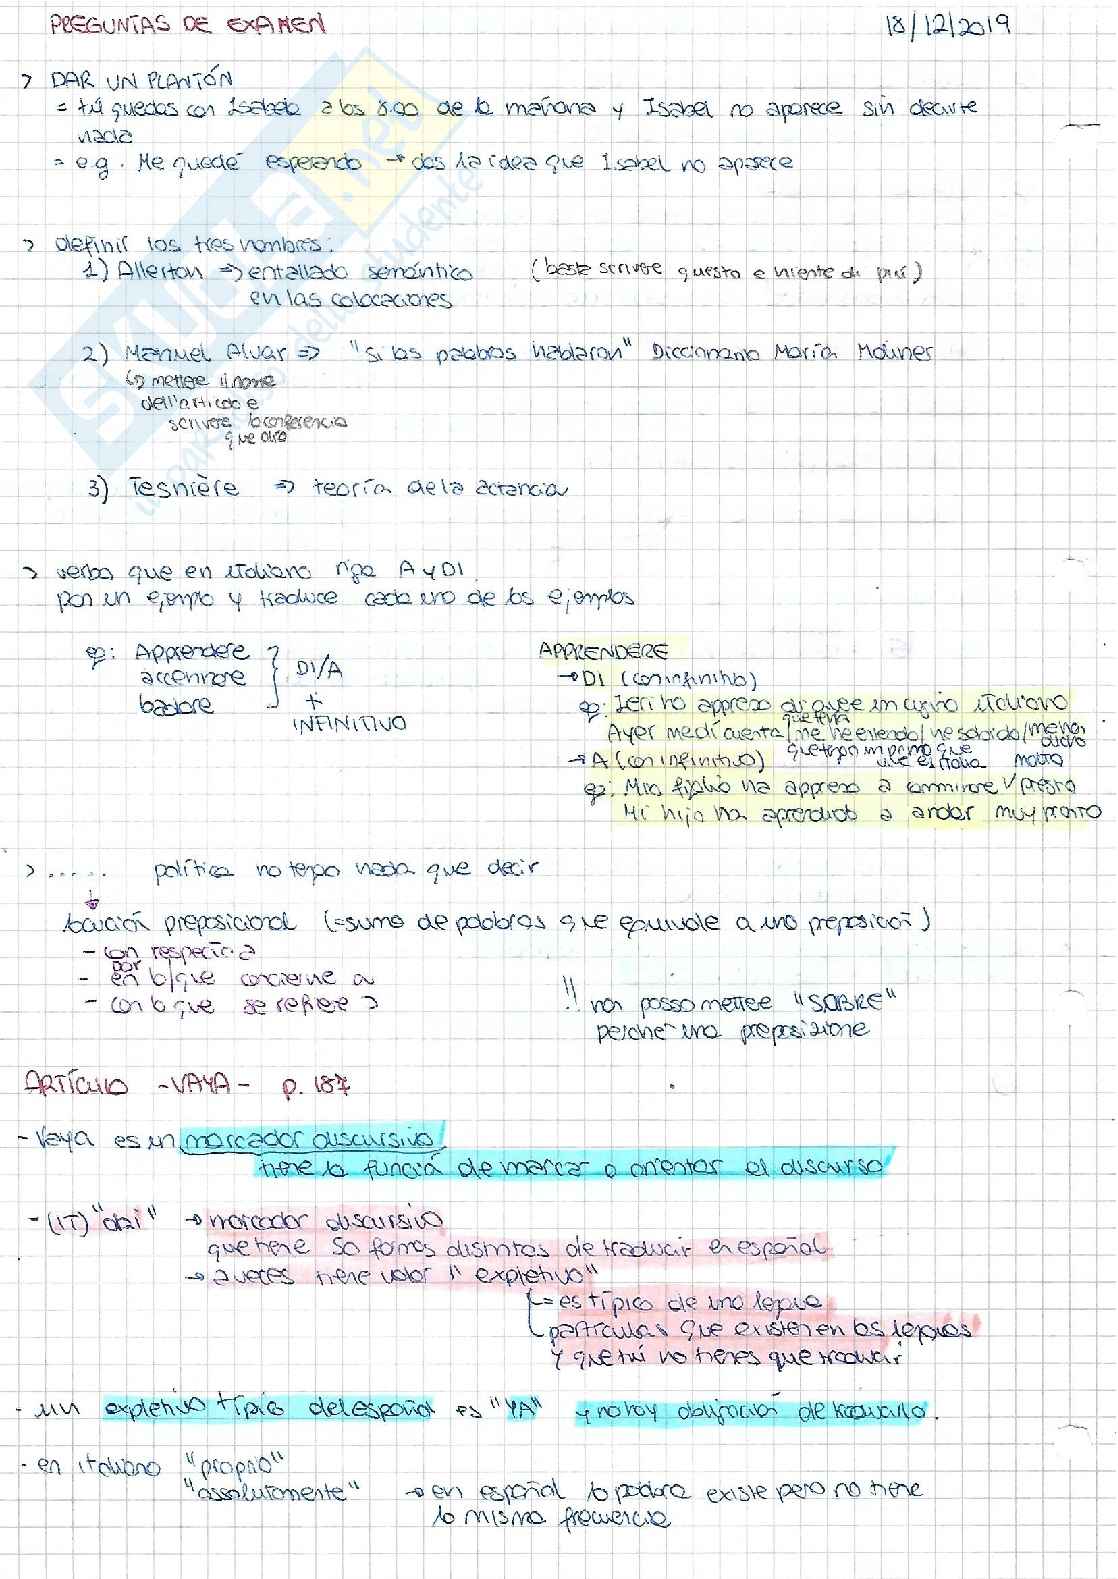 PREGUNTAS DE EXAMEN 18/12/2019
> DAR UN PLANTÓN
= tú quedas con Isabela a las 8.00 de la mañana y Isabel no aparece sin decirte
nada
= e.g. Me quedé esperando → das la idea que Isabel no aparece
> definir los tres nombres:
1) Allerton ⇒ entallado semántico (basta scrivere questo e niente di più)
en las colocaciones
2) Manuel Alvar ⇒ "Si las palabras hablaran" Diccionario María Moliner
↳ mettere il nome
dell'articolo e
scrivere la conferencia
que dio
3) Tesnière ⇒ teoría de la actancia
> verbo que en italiano rige A y DI.
pon un ejemplo y traduce cada uno de los ejemplos
eg: Apprendere
accennare
badare
DI/A
+
INFINITIVO
APPRENDERE
→ DI (con infinitivo)
eg: Ieri ho appreso di avere un cugino italiano
Ayer me di cuenta / me he enterado / he sabido / me ha dicho
que tenía
que tengo un primo que vive en Italia
→ A (con infinitivo) molto
eg: Mio figlio ha appreso a camminare √ presto
Mi hijo ha aprendido a andar muy pronto
> ...... política no tengo nada que decir
↓
locución preposicional (=suma de palabras que equivale a una preposición)
- con respecto a
- en / por lo que concierne a
- con lo que se refiere a
!! non posso mettere "SOBRE"
perché una preposizione
ARTÍCULO -VAYA- p. 187
- Vaya es un marcador discursivo
tiene la función de marcar o orientar el discurso
- (IT) "anzi" → marcador discursivo
que tiene 50 formas distintas de traducir en español
→ a veces tiene valor "expletivo"
= es típico de una lengua
partículas que existen en las lenguas
y que tú no tienes que traducir
- un expletivo típico del español es "YA" y no hay obligación de traducirlo.
- en italiano "proprio"
"assolutamente" → en español la palabra existe pero no tiene
la misma frecuencia